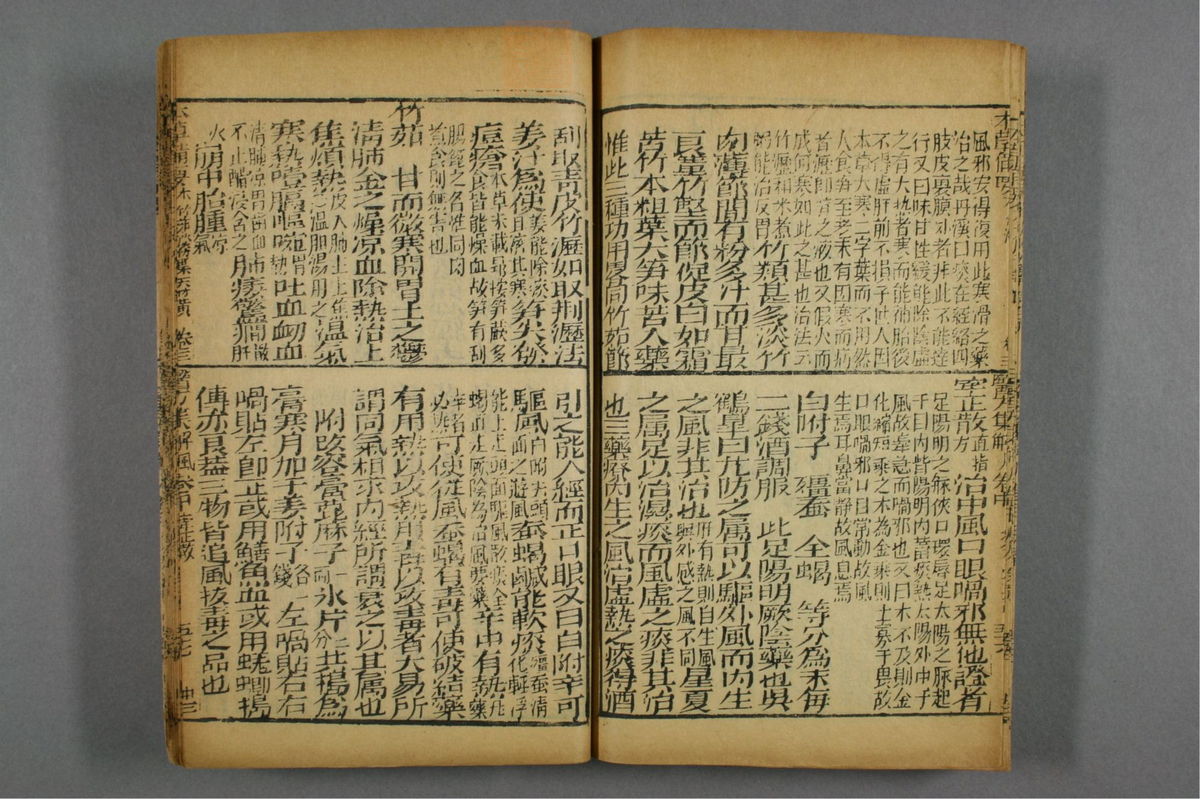 風邪安得復用此寒滑之藥
治之哉丹溪曰痰在經絡四
肢皮裏膜外者非此不能達
行又曰味甘性緩能除陰虛
之有大熱者寒而能補胎後
不得虛胎前不損子世人因
本草大寒二字棄而不用然
人食笋至老未有因寒而病
者瀝即笋之液也又假火而
成何寒如此之甚也治法云
竹瀝和米煮
粥能治反胃
竹類甚多淡竹
肉薄節間有粉多汁而甘最
良篁竹堅而節促皮白如霜
苦竹本粗葉大笋味苦入藥
惟此三種功用畧同竹茹節
刮取青皮竹瀝如取荊瀝法
姜汁為使
姜能除痰
且濟其寒
笋尖發
痘瘡
食皆能燥血故笋有刮
腸篦之名性同
竹茹 甘而微寒開胃土之鬱
清肺金之燥凉血除熱治上
焦煩熱
皮入肺主上焦
溫胆湯用之
溫氣
寒熱噎膈嘔噦
胃熱
吐血衄血
清肺凉胃齒血
不止醋浸含之
肺痿驚癇
散肝
火
崩中胎動
凉胎
氣
直指
方
治中風口眼喎邪無他證者
足陽明之脉俠口環唇足太陽之脉起
于目內眥陽明內蓄痰熱太陽外中于
風故牽急而喎邪也又曰木不及則金
化縮短乘之木為金乘則土寡于畏故
口眼喎邪口目常動故風
生焉耳鼻常靜故風息焉
白附子 殭蚕 全蝎 等分為末每
二錢酒調服 此足陽明厥陰藥也吳
鶴皐曰艽防之屬可以驅外風而內生
之風非其治也
所有熱則自生風
與外感之風不同
星夏
之屬足以治濕痰而風虛之痰非其治
也三藥療內生之風治虛熱之痰得酒
引之能入經而正口眼又曰白附辛可
驅風
白附去頭
面之遊風
蚕蝎鹹能軟痰
殭蚕清
化輕浮
能上走頭面驅風散痰
蝎直走厥陰為治風要藥
辛中有熱
可使從風蚕蝎有毒可使破結藥
有用熱以攻熱用毒以攻毒者大易所
謂同氣相求內經所謂衰之以其屬也
附改容膏蓖麻子
一
兩
冰片
三
分
共搗為
膏寒月加干姜附子
各一
錢
左喎貼右右
喎貼左即正或用鱔魚血或用蜣蜋搗
傅亦良葢三物皆追風拔毒之品也